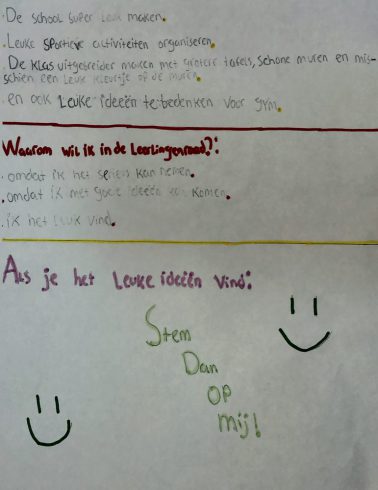 · De school super leuk maken.
· Leuke sportieve activiteiten organiseren.
· De klas uitgebreider maken met grotere tafels, schone muren en mis-
schien een leuk kleurtje op de muren.
· en ook leuke ideeën te bedenken voor gym.
Waarom wil ik in de Leerlingenraad?:
· omdat ik het serieus kan nemen.
· omdat ik met goeie ideeën kan komen.
· ik het leuk vind.
Als je het Leuke ideeën vind:
Stem
Dan
op
mij!